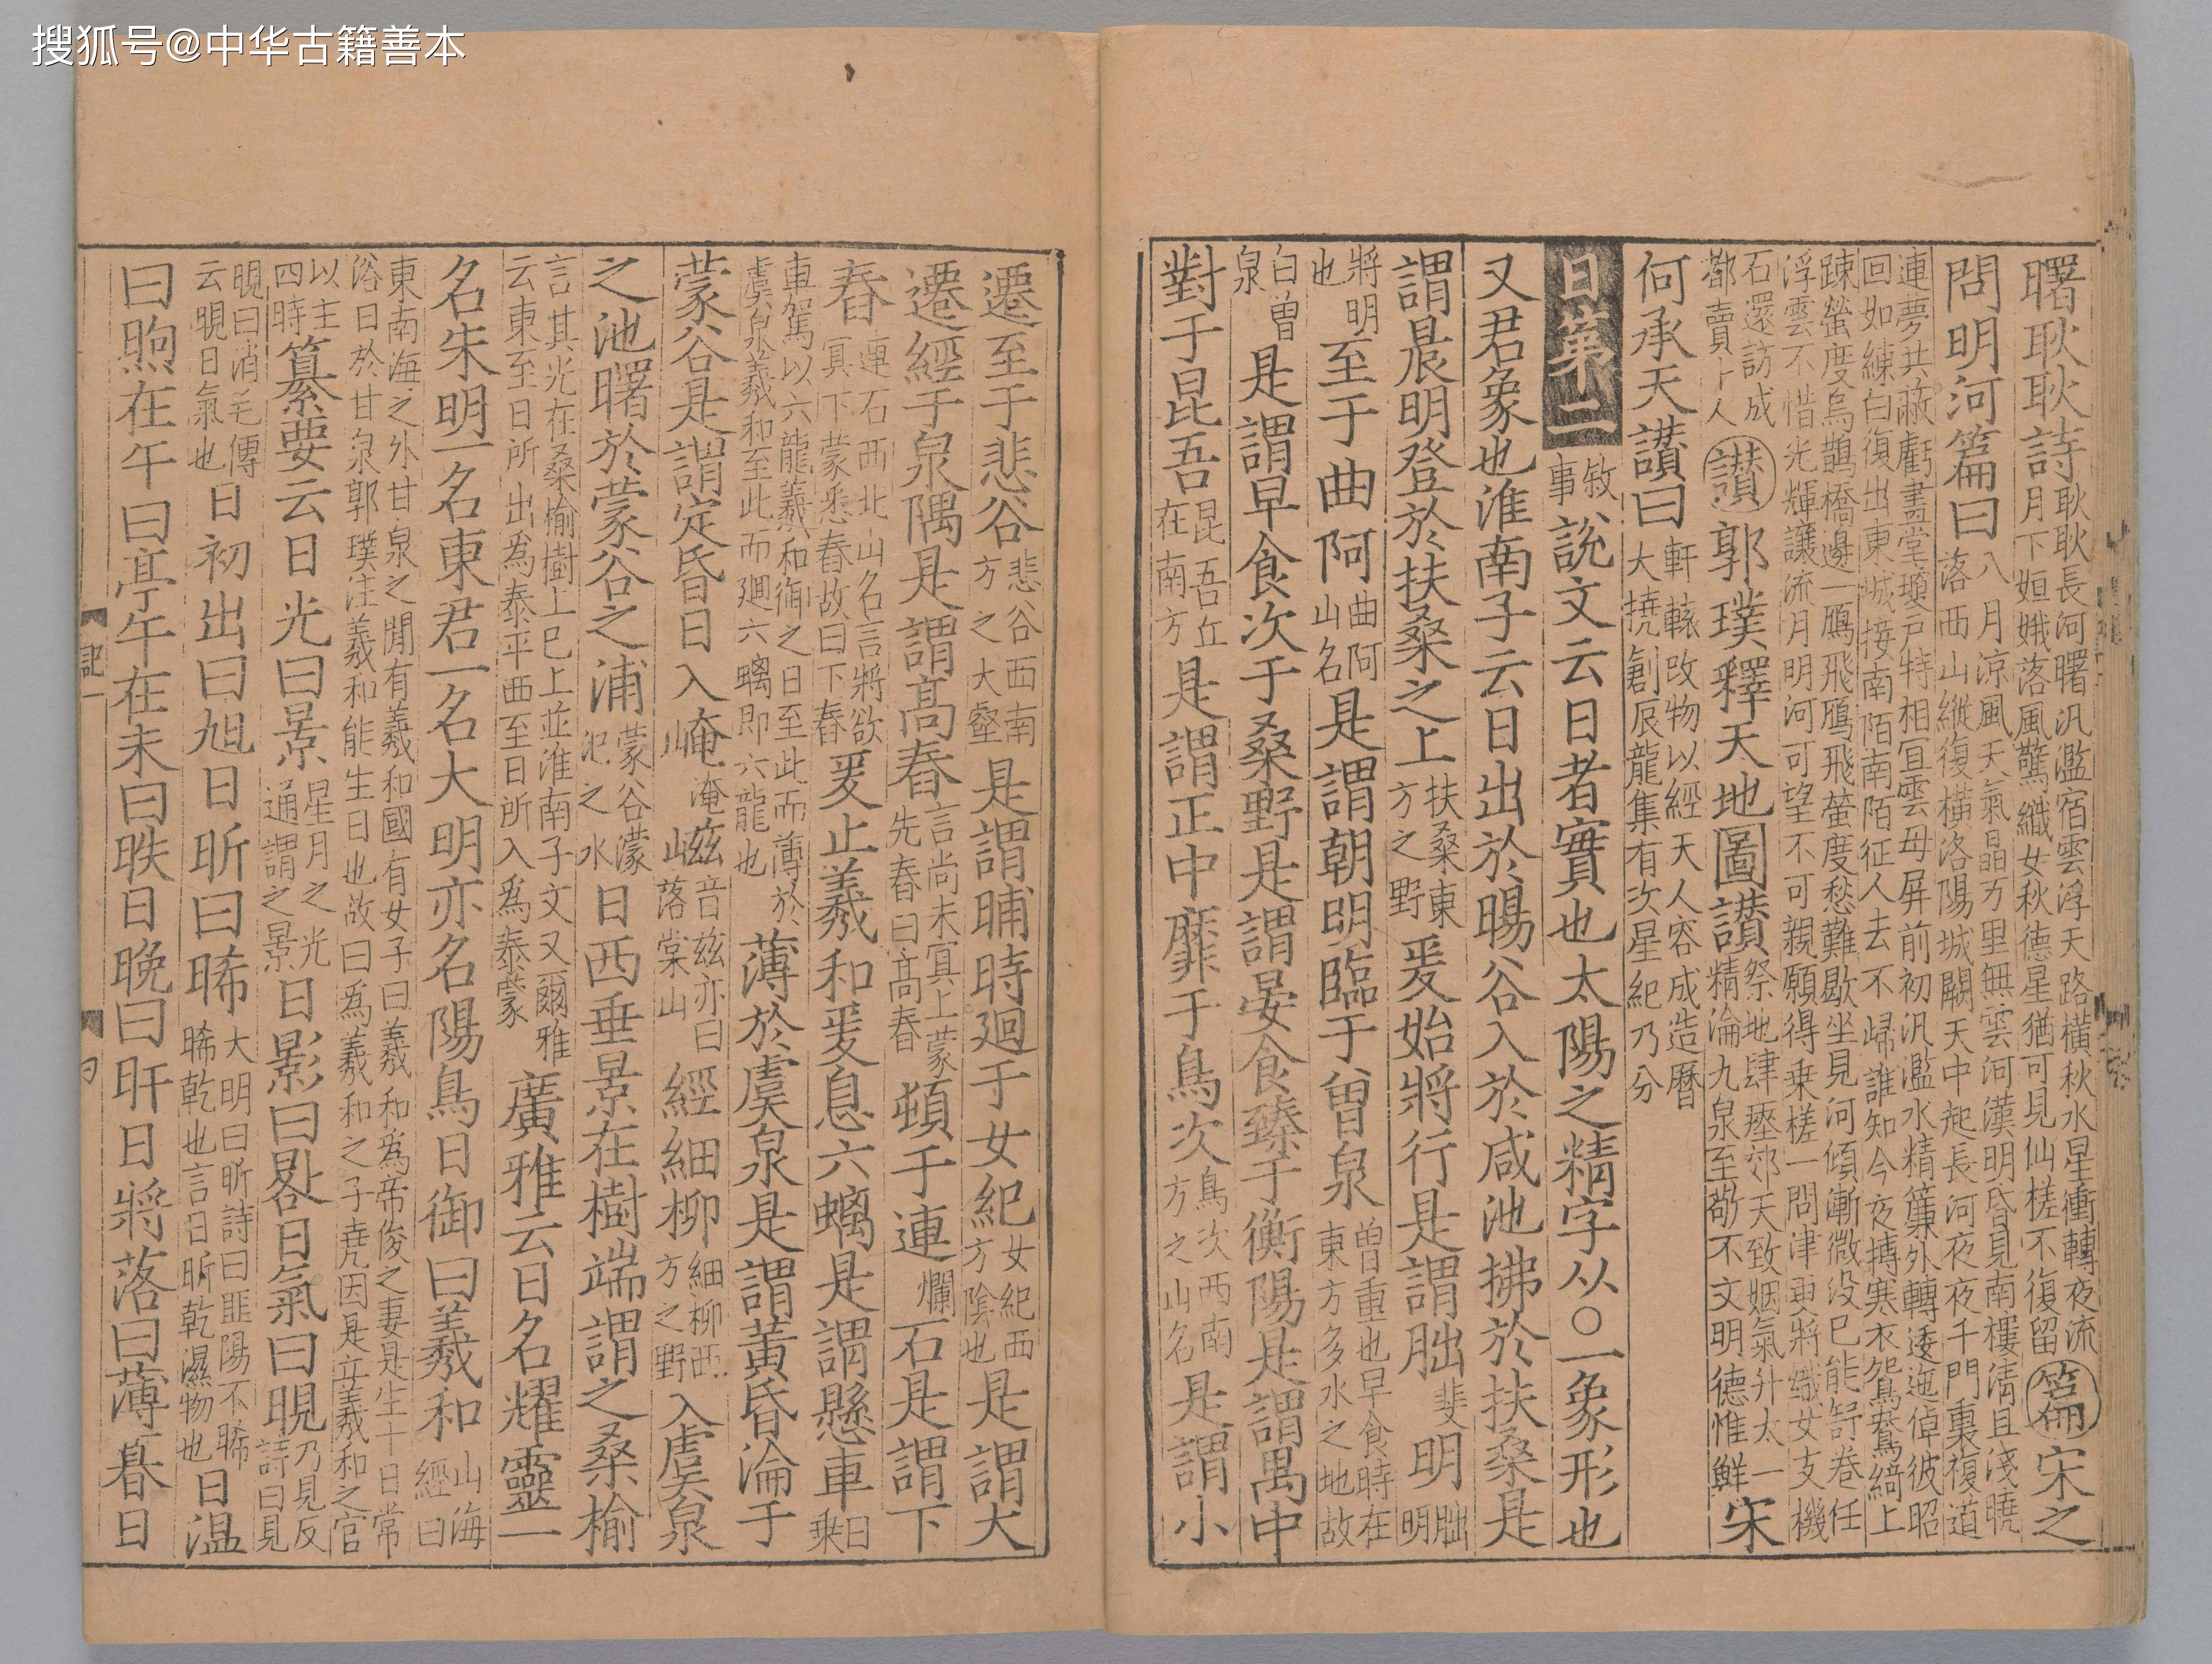 搜狐号@中华古籍善本
曙耿耿詩耿耿長河曙汎濫宿雲浮天路橫秋水星衝轉夜流月下姮娥落風驚織女秋德星猶可見仙槎不復留篇宋之
問明河篇曰八月涼風天氣晶万里無雲河漢明昏見南樓清且淺曉落西山縱復橫洛陽城闕天中起長河夜夜千門裏複道
連夢共蔽虧畫堂瓊戶特相宜雲母屏前初汎濫水精簾外轉逶迤倬彼昭回如練白復出東城接南陌南陌征人去不歸誰知今夜擣寒衣鴛鴦綺上
踈螢度烏鵲橋邊一鴈飛鴈飛螢度愁難歇坐見河傾漸微没已能舒卷任浮雲不惜光輝讓流月明河可望不可親願得乘槎一問津更將織女支機
石還訪成都賣卜人讃郭璞釋天地圖讃祭地肆瘞郊天致煙氣升太一精淪九泉至敬不文明德惟鮮宋
何承天讃曰軒轅改物以經天人容成造曆大撓創辰龍集有次星紀乃分
日第二敘事説文云日者實也太陽之精字从○一象形也
又君象也淮南子云日出於暘谷入於咸池拂於扶桑是
謂晨明登於扶桑之上扶桑東方之野爰始將行是謂朏斐明朏明
將明也至于曲阿曲阿山名是謂朝明臨于曾泉曾重也早食時在東方多水之地故
曰曾泉是謂早食次于桑野是謂晏食臻于衡陽是謂禺中
對于昆吾昆吾丘在南方是謂正中靡于鳥次鳥次西南方之山名是謂小
遷至于悲谷悲谷西南方之大壑是謂晡時迴于女紀女紀西方陰也是謂大
遷經于泉隅是謂高舂言尚未冥上蒙先舂曰高舂頓于連爛石是謂下
舂連石西北山名言將欲冥下蒙悉舂故曰下舂爰止羲和爰息六螭是謂懸車日乘
車駕以六龍羲和御之日至此而薄於虞泉羲和至此而迴六螭即六龍也薄於虞泉是謂黄昏淪于
蒙谷是謂定昏日入崦淹嵫音兹亦曰落棠山經細柳細柳西方之野入虞泉
之池曙於蒙谷之浦蒙谷濛汜之水日西垂景在樹端謂之桑榆
言其光在桑榆樹上巳上並淮南子文又爾雅云東至日所出爲泰平西至日所入爲泰蒙廣雅云日名耀靈一
名朱明一名東君一名大明亦名陽烏日御曰羲和山海經曰
東南海之外甘泉之間有羲和國有女子曰羲和爲帝俊之妻是生十日常浴日於甘泉郭璞注羲和能生日也故曰爲羲和之子堯因是立羲和之官
以主四時纂要云日光曰景星月之光通謂之景日影曰晷日氣曰晛乃見反詩曰見
晛曰消毛傳云晛日氣也日初出曰旭日昕曰晞大明曰昕詩曰匪陽不晞晞乾也言日昕乾濕物也日温
曰煦在午曰亭午在未曰昳日晚曰旰日將落曰薄暮日
記一